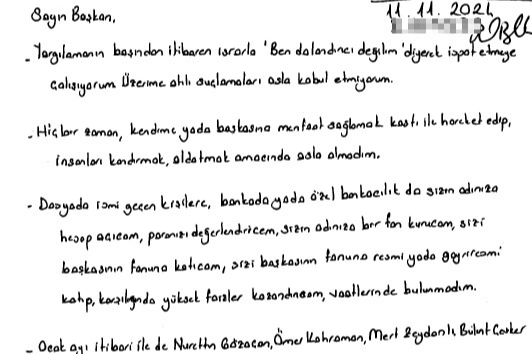 Sayın Başkan,
11.11.2024
- Yargılamanın başından itibaren ısrarla 'Ben dolandırıcı değilim' diyerek ispat etmeye
çalışıyorum. Üzerime atılı suçlamaları asla kabul etmiyorum.
- Hiçbir zaman, kendime yada başkasına menfaat sağlamak kastı ile hareket edip,
insanları kandırmak, aldatmak amacında asla olmadım.
- Dosyada ismi geçen kişilere, bankada yada özel bankacılık da sizin adınıza
hesap açıcam, paranızı değerlendiricem, sizin adınıza bir fon kurucam, sizi
başkasının fonuna katıcam, sizi başkasının fonuna resmi yada gayriresmi
katıp, karşılığında yüksek faizler kazandırıcam, vaatlerinde bulunmadım.
- Ocak ayı itibari ile de Nurettin Ömer Kahraman, Mert Zeydanlı, Bülent